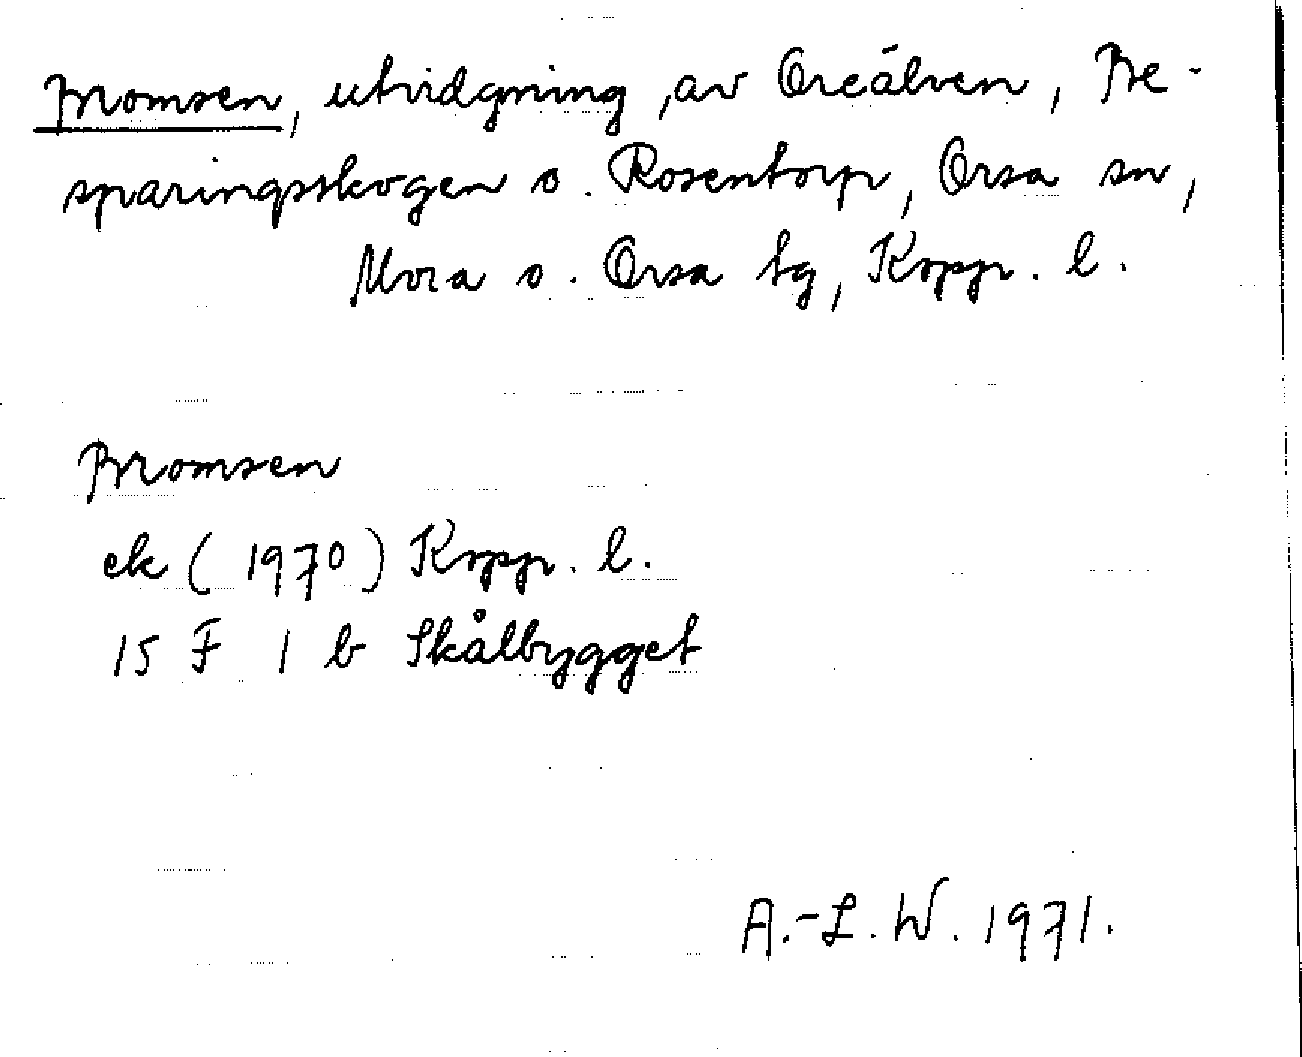 Bromsen, utvidgning av Oreälven, Be-
sparingsskogen o. Rosentorp, Orsa sn,
Mora o. Orsa tg, Kopp. l.
Bromsen
ek (1970) Kopp. l.
15 F 1 b Skålbygget
A.-L. W. 1971.